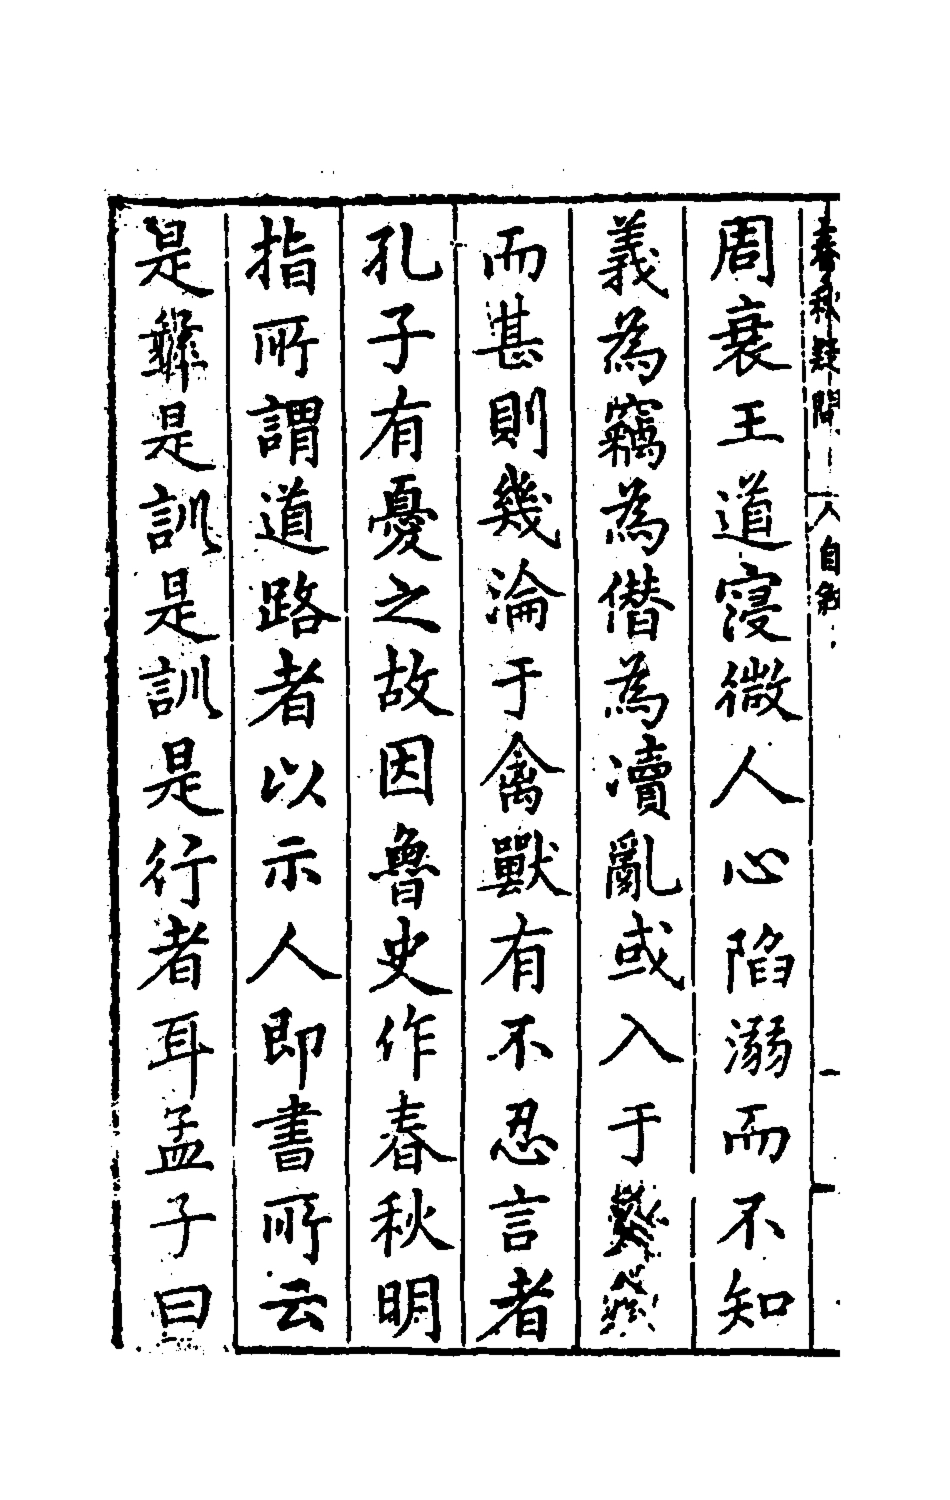 春秋疑問
自敘
周衰王道寖微人心陷溺而不知
義為竊為僭為瀆亂或入于
而甚則幾淪于禽獸有不忍言者
孔子有憂之故因魯史作春秋明
指所謂道路者以示人即書所云
是彝是訓是訓是行者耳孟子曰